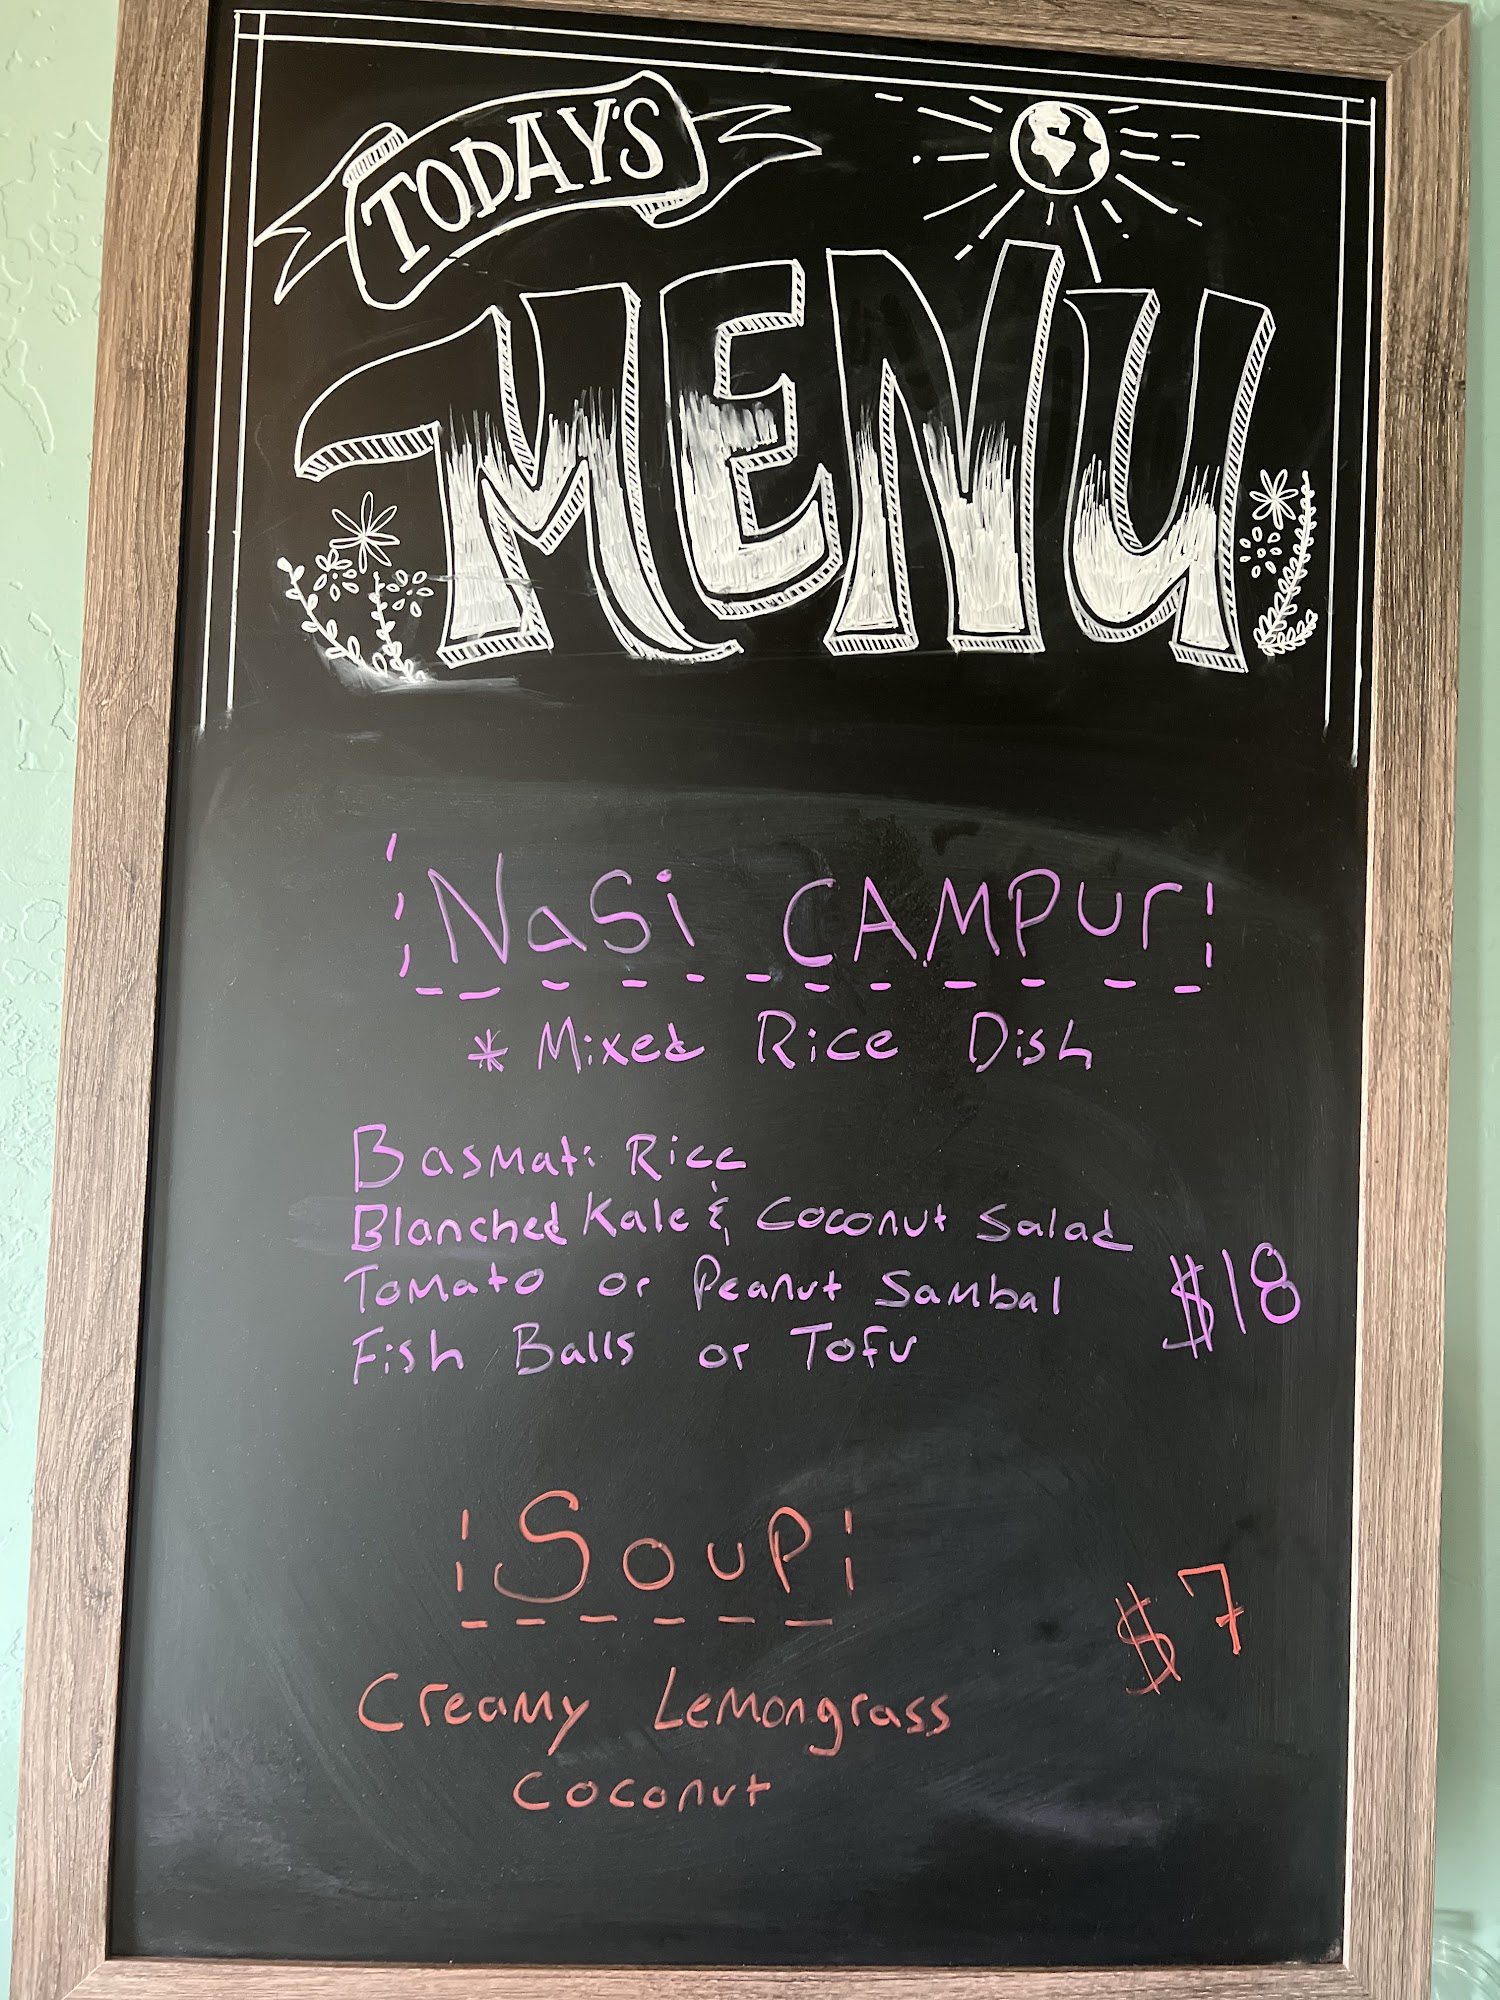 TODAY'S
MENU
NaSi CAMPUr
* Mixed Rice Dish
Basmati Rice
Blanched Kale & Coconut Salad
Tomato or Peanut Sambal
Fish Balls or Tofu
$18
Soup
$7
Creamy Lemongrass
Coconut